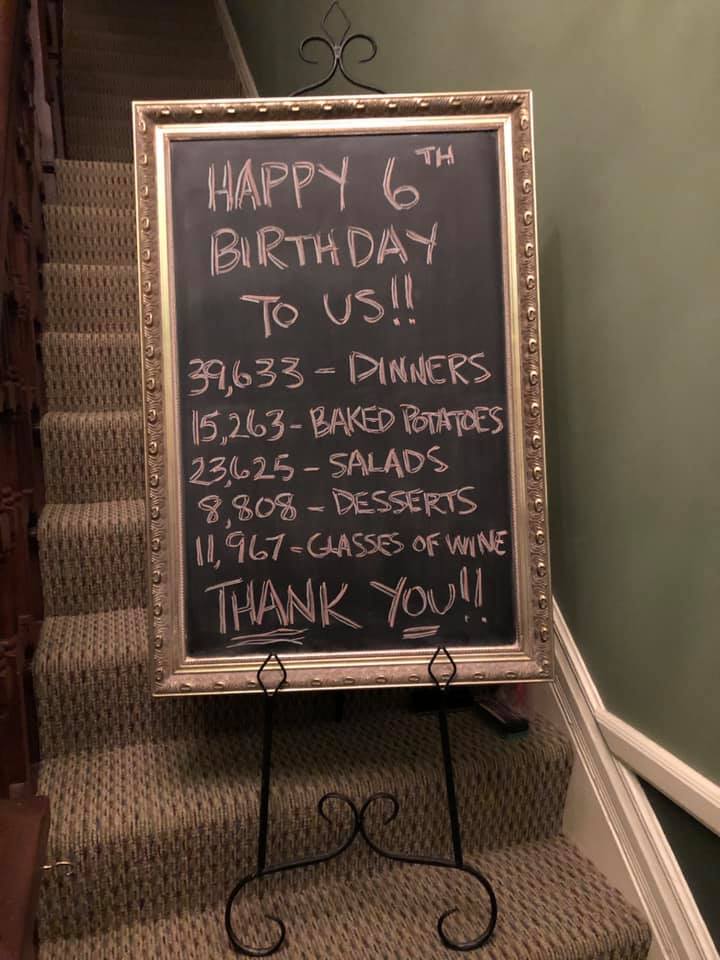 HAPPY 6TH
BIRTHDAY
TO US!!
39,633 - DINNERS
15,263 - BAKED POTATOES
23,625 - SALADS
8,808 - DESSERTS
11,967 - GLASSES OF WINE
THANK YOU!!